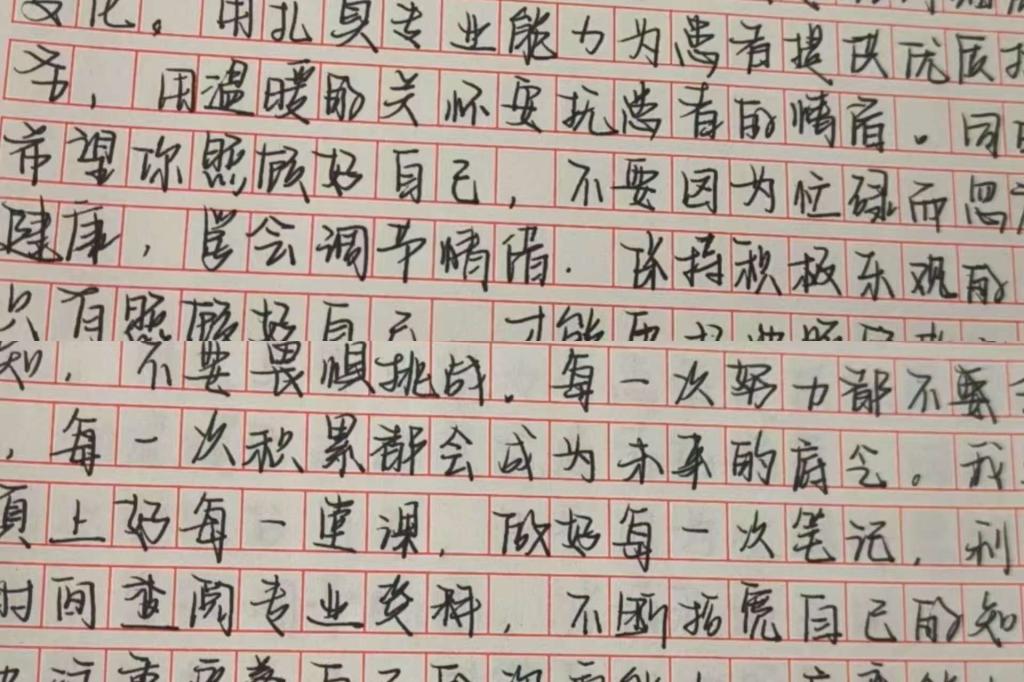 文化。用扎具专业能力为患者提供优质
务，用温暖的关怀安抚患者的情绪。同
希望你照顾好自己，不要因为忙碌而忽
健康，学会调节情绪．保持积极乐观的
只有照顾好自己，才能
知，不要畏惧挑战．每一次努力都不要
，每一次积累都会成为未来的底气。我
真上好每一堂课，做好每一次笔记，利
时间查阅专业资料，不断拓宽自己的知